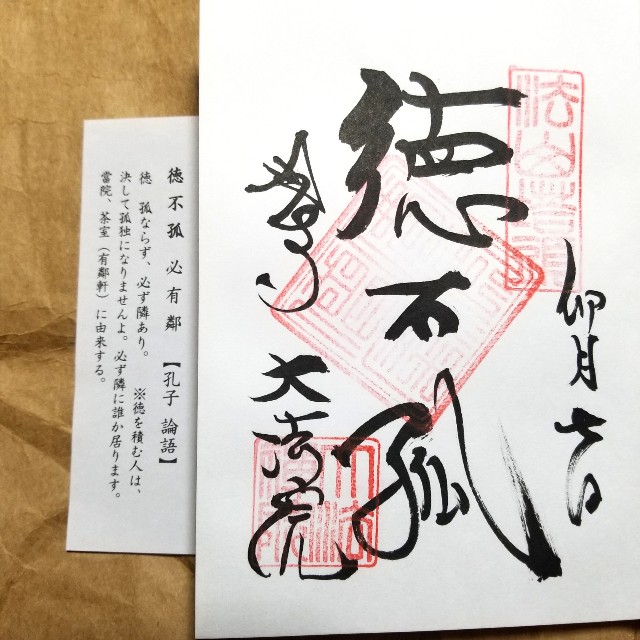 卯月七日
徳不孤
大法院
徳不孤必有鄰【孔子 論語】
徳 孤ならず、必ず隣あり。 ※徳を積む人は、
決して孤独になりませんよ。必ず隣に誰か居ります。
當院、茶室(有鄰軒)に由来する。